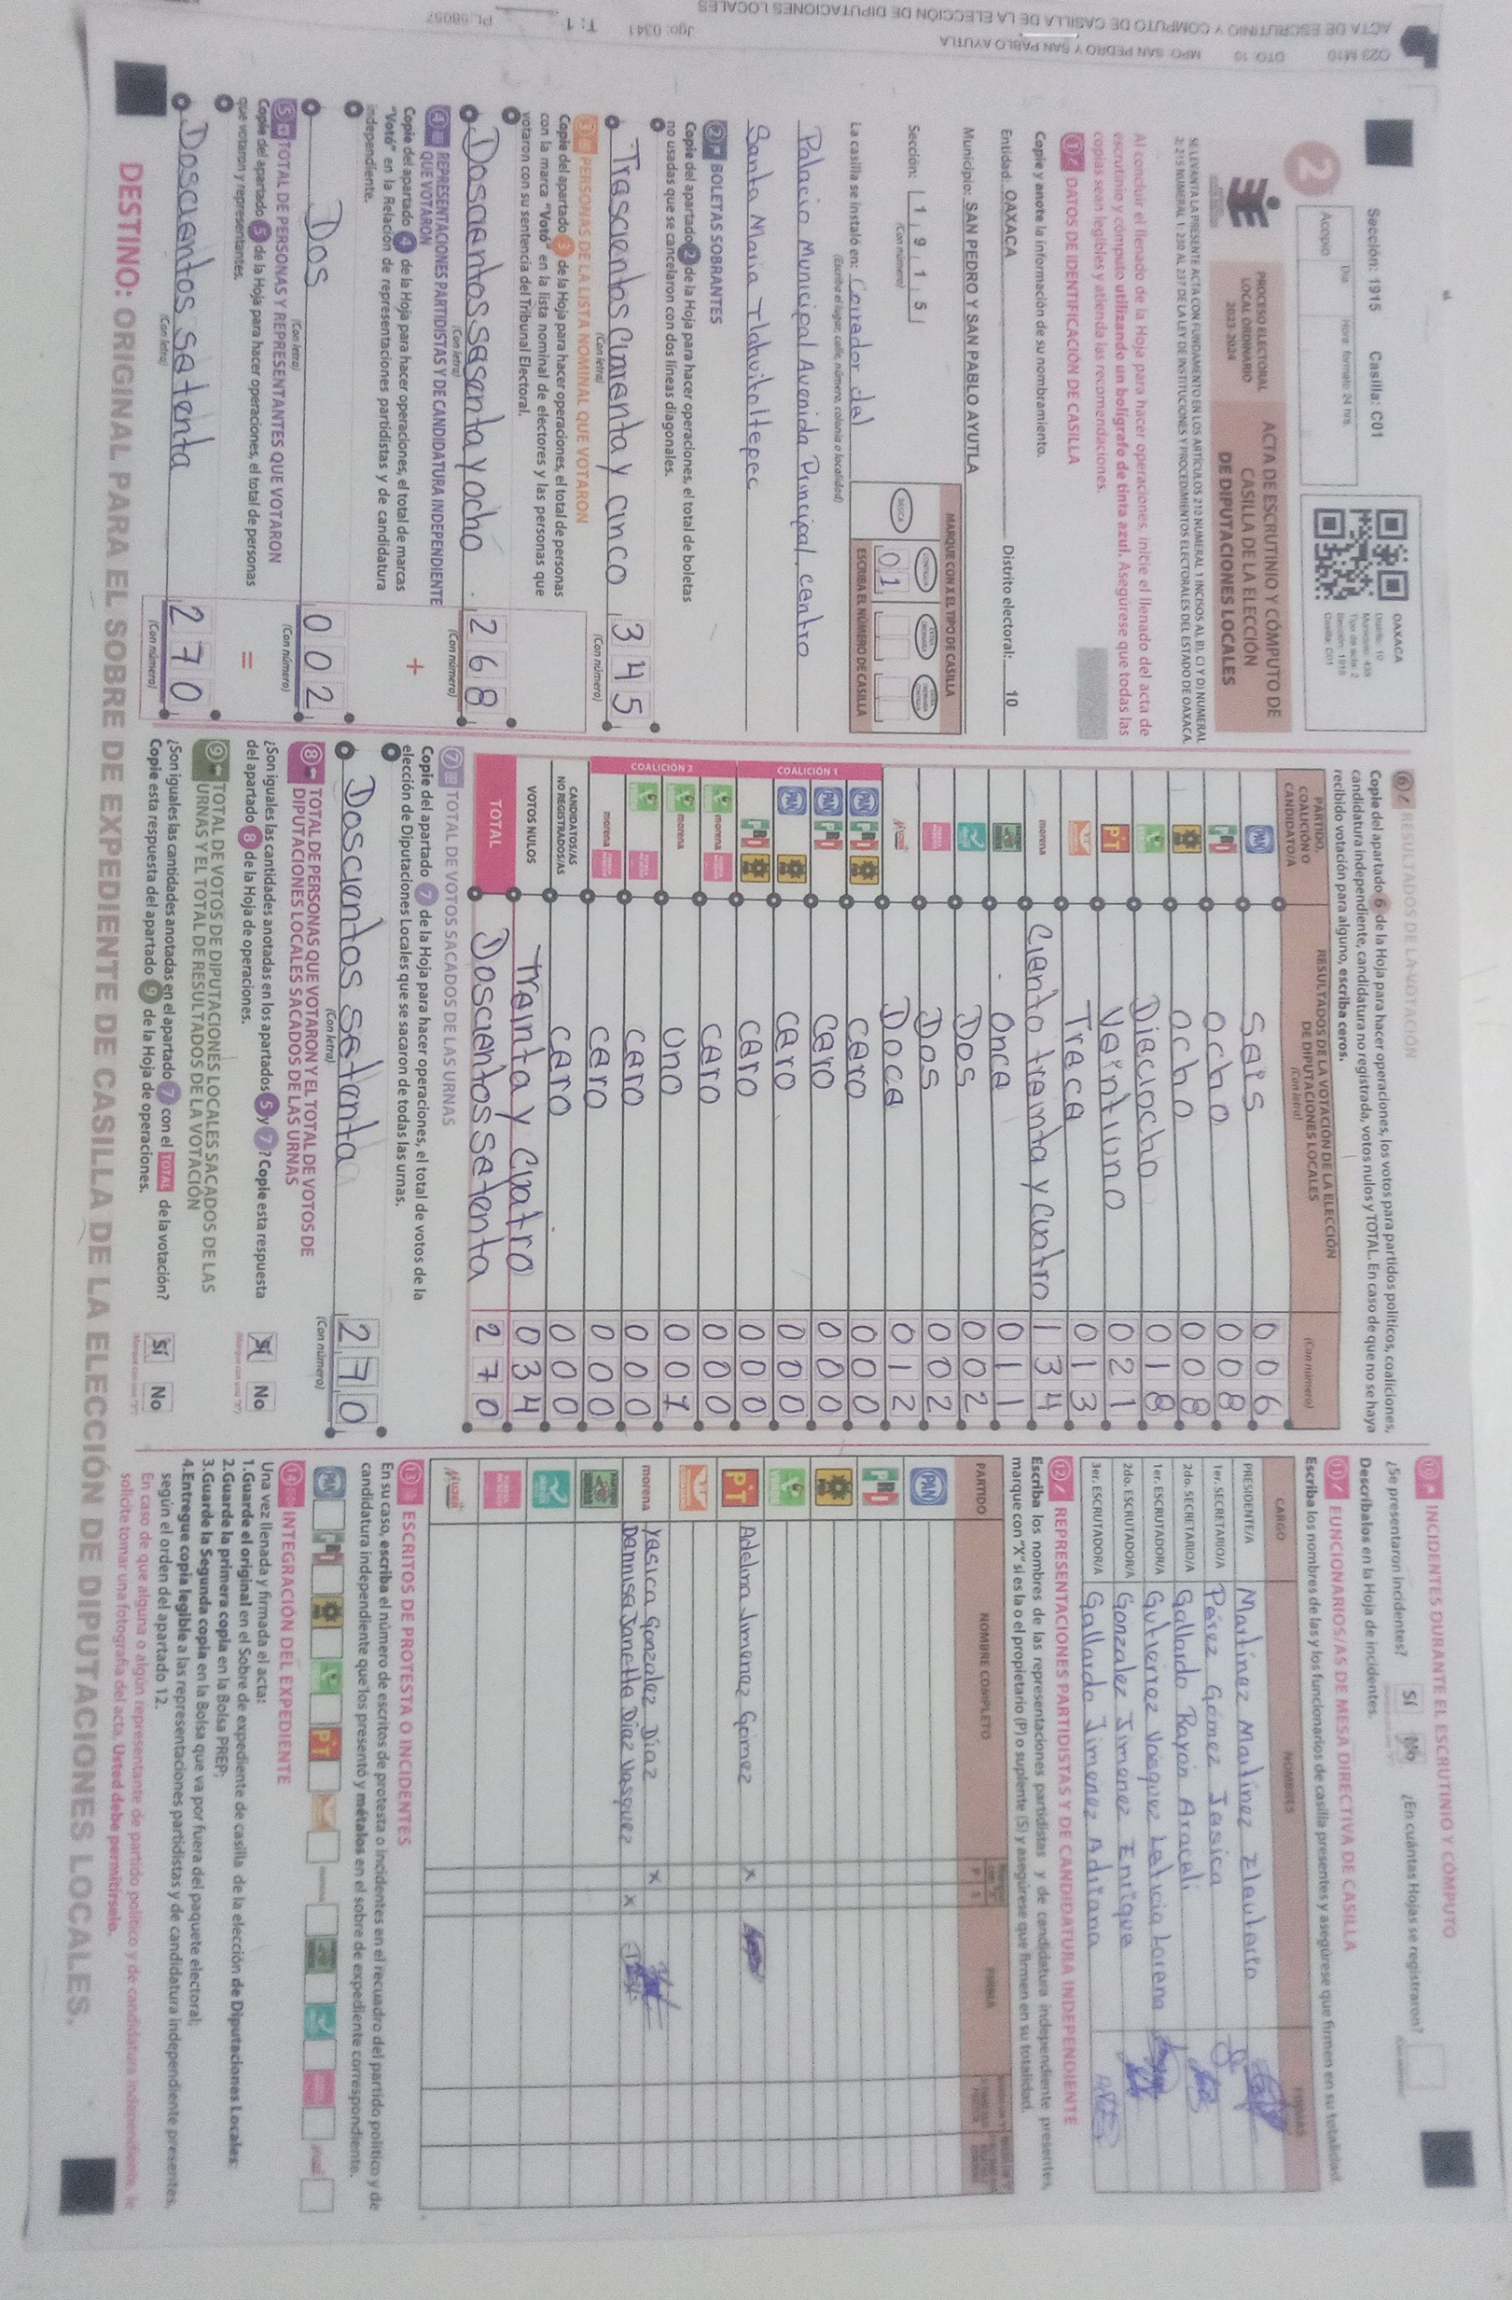 2
Sección: 1915 Casilla: C01
Acopio
Día
Hora: formato 24 hrs.
OAXACA
Distrito: 10
Tipo de acta: 2
Sección: 1915
Casilla: C01
PROCESO ELECTORAL
LOCAL ORDINARIO
2023-2024
ACTA DE ESCRUTINIO Y CÓMPUTO DE
CASILLA DE LA ELECCIÓN
DE DIPUTACIONES LOCALES
Al concluir el llenado de la Hoja para hacer operaciones, inicie el llenado del acta de
escrutinio y cómputo utilizando un bolígrafo de tinta azul. Asegúrese que todas las
copias sean legibles y atienda las recomendaciones.
1 DATOS DE IDENTIFICACIÓN DE CASILLA
Copie y anote la información de su nombramiento.
Entidad: OAXACA Distrito electoral: 10
Municipio: SAN PEDRO Y SAN PABLO AYUTLA
Sección: 1 9 1 5
(Con número)
MARQUE CON X EL TIPO DE CASILLA
BÁSICA
01
ESCRIBA EL NÚMERO DE CASILLA
La casilla se instaló en: Corredor del
(Escriba el lugar, calle, número, colonia o localidad)
Palacio Municipal Avenida Principal, centro
Santa Maria Tlahuitoltepec
2 BOLETAS SOBRANTES
Copie del apartado 2 de la Hoja para hacer operaciones, el total de boletas
no usadas que se cancelaron con dos líneas diagonales.
Trescientos Cuarenta y cinco 345
(Con letra) (Con número)
3 PERSONAS DE LA LISTA NOMINAL QUE VOTARON
Copie del apartado 3 de la Hoja para hacer operaciones, el total de personas
con la marca "Votó" en la lista nominal de electores y las personas que
votaron con su sentencia del Tribunal Electoral.
Doscientos sesenta y ocho 268
(Con letra) (Con número)
4 REPRESENTACIONES PARTIDISTAS Y DE CANDIDATURA INDEPENDIENTE
QUE VOTARON
Copie del apartado 4 de la Hoja para hacer operaciones, el total de marcas
"Votó" en la Relación de representaciones partidistas y de candidatura
independiente.
+
Dos 002
(Con letra) (Con número)
5 TOTAL DE PERSONAS Y REPRESENTANTES QUE VOTARON
Copie del apartado 5 de la Hoja para hacer operaciones, el total de personas
que votaron y representantes.
=
Doscientos setenta 270
(Con letra) (Con número)
6 RESULTADOS DE LA VOTACIÓN
Copie del apartado 6 de la Hoja para hacer operaciones, los votos para partidos políticos, coaliciones,
candidatura independiente, candidatura no registrada, votos nulos y TOTAL. En caso de que no se haya
recibido votación para alguno, escriba ceros.
PARTIDO,
COALICIÓN O
CANDIDATO/A
RESULTADOS DE LA VOTACIÓN DE LA ELECCIÓN
DE DIPUTACIONES LOCALES
(Con letra) (Con número)
PAN Seis 006
PRI ocho 008
ocho 008
Dieciocho 018
PT Veintiuno 021
Trece 013
morena Ciento treinta y cuatro 134
once 011
Dos 002
Dos 002
Doce 012
COALICIÓN 1
PAN PRI cero 000
PAN PRI cero 000
PAN cero 000
PRI cero 000
COALICIÓN 2
morena cero 000
morena uno 001
cero 000
morena cero 000
CANDIDATOS/AS
NO REGISTRADOS/AS cero 000
VOTOS NULOS Treinta y cuatro 034
TOTAL Doscientos setenta 270
7 TOTAL DE VOTOS SACADOS DE LAS URNAS
Copie del apartado 7 de la Hoja para hacer operaciones, el total de votos de la
elección de Diputaciones Locales que se sacaron de todas las urnas.
Doscientos setenta 270
(Con letra) (Con número)
8 TOTAL DE PERSONAS QUE VOTARON Y EL TOTAL DE VOTOS DE
DIPUTACIONES LOCALES SACADOS DE LAS URNAS
¿Son iguales las cantidades anotadas en los apartados 5 y 7? Copie esta respuesta
del apartado 8 de la Hoja de operaciones.
Sí No
9 TOTAL DE VOTOS DE DIPUTACIONES LOCALES SACADOS DE LAS
URNAS Y EL TOTAL DE RESULTADOS DE LA VOTACIÓN
¿Son iguales las cantidades anotadas en el apartado 7 con el TOTAL de la votación?
Copie esta respuesta del apartado 9 de la Hoja de operaciones.
Sí No
10 INCIDENTES DURANTE EL ESCRUTINIO Y CÓMPUTO
¿Se presentaron incidentes? Sí No ¿En cuántas Hojas se registraron?
Descríbalos en la Hoja de incidentes.
11 FUNCIONARIOS/AS DE MESA DIRECTIVA DE CASILLA
Escriba los nombres de las y los funcionarios de casilla presentes y asegúrese que firmen en su totalidad.
CARGO NOMBRES FIRMAS
PRESIDENTE/A Martínez Martínez Eleuterio
1er. SECRETARIO/A Pérez Gómez Jesica
2do. SECRETARIO/A Gallardo Rayón Araceli
1er. ESCRUTADOR/A Gutierrez Vasquez Leticia Lorena
2do. ESCRUTADOR/A Gonzalez Jimenez Enrique
3er. ESCRUTADOR/A Gallardo Jimenez Aditana
12 REPRESENTACIONES PARTIDISTAS Y DE CANDIDATURA INDEPENDIENTE
Escriba los nombres de las representaciones partidistas y de candidatura independiente presentes,
marque con "X" si es la o el propietario (P) o suplente (S) y asegúrese que firmen en su totalidad.
PARTIDO NOMBRE COMPLETO P S FIRMA
PAN
PRI
PT Adelina Jimenez Gomez x
morena Yesica Gonzalez Díaz x
Dannisa Janetta Diaz Vasquez x
13 ESCRITOS DE PROTESTA O INCIDENTES
En su caso, escriba el número de escritos de protesta o incidentes en el recuadro del partido político y de
candidatura independiente que los presentó y métalos en el sobre de expediente correspondiente.
PAN PRI PT
14 INTEGRACIÓN DEL EXPEDIENTE
Una vez llenada y firmada el acta:
1.Guarde el original en el Sobre de expediente de casilla de la elección de Diputaciones Locales;
2.Guarde la primera copia en la Bolsa PREP;
3.Guarde la Segunda copia en la Bolsa que va por fuera del paquete electoral;
4.Entregue copia legible a las representaciones partidistas y de candidatura independiente presentes,
según el orden del apartado 12.
En caso de que alguna o algún representante de partido político y de candidatura independiente, le
solicite tomar una fotografía del acta, Usted debe permitírselo.
DESTINO: ORIGINAL PARA EL SOBRE DE EXPEDIENTE DE CASILLA DE LA ELECCIÓN DE DIPUTACIONES LOCALES.
DTO: 10 MPO: SAN PEDRO Y SAN PABLO AYUTLA
ACTA DE ESCRUTINIO Y CÓMPUTO DE CASILLA DE LA ELECCIÓN DE DIPUTACIONES LOCALES
Jgo: 0341 T: 1